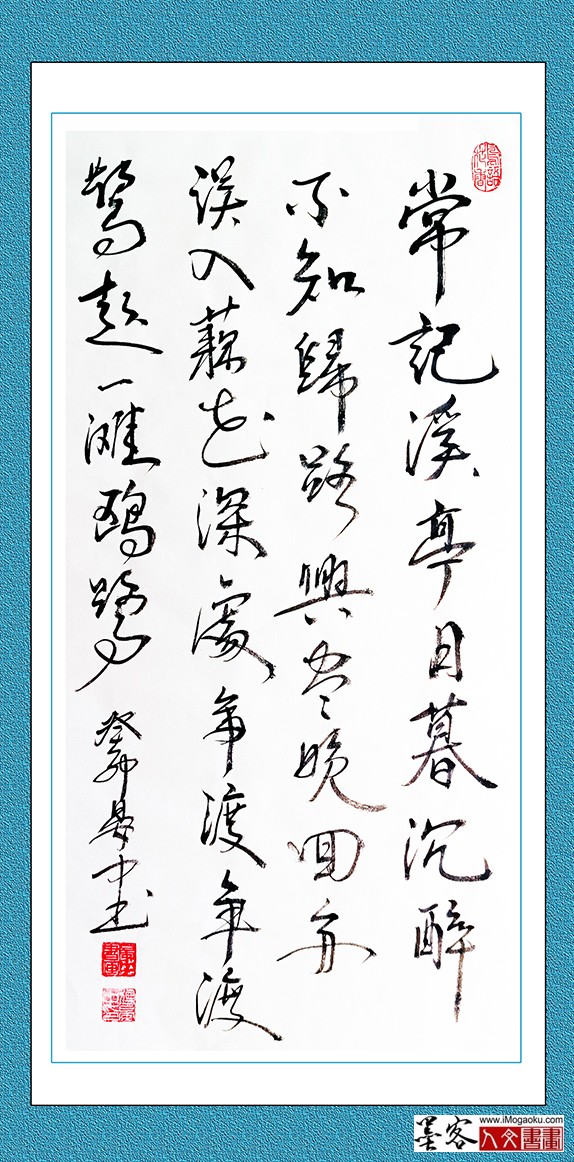 常記溪亭日暮沉醉
不知歸路興尽晚回舟
误入藕花深處争渡争渡
驚起一滩鷗鷺
癸卯中书
墨客
www.iMogaoku.com
人文書畫